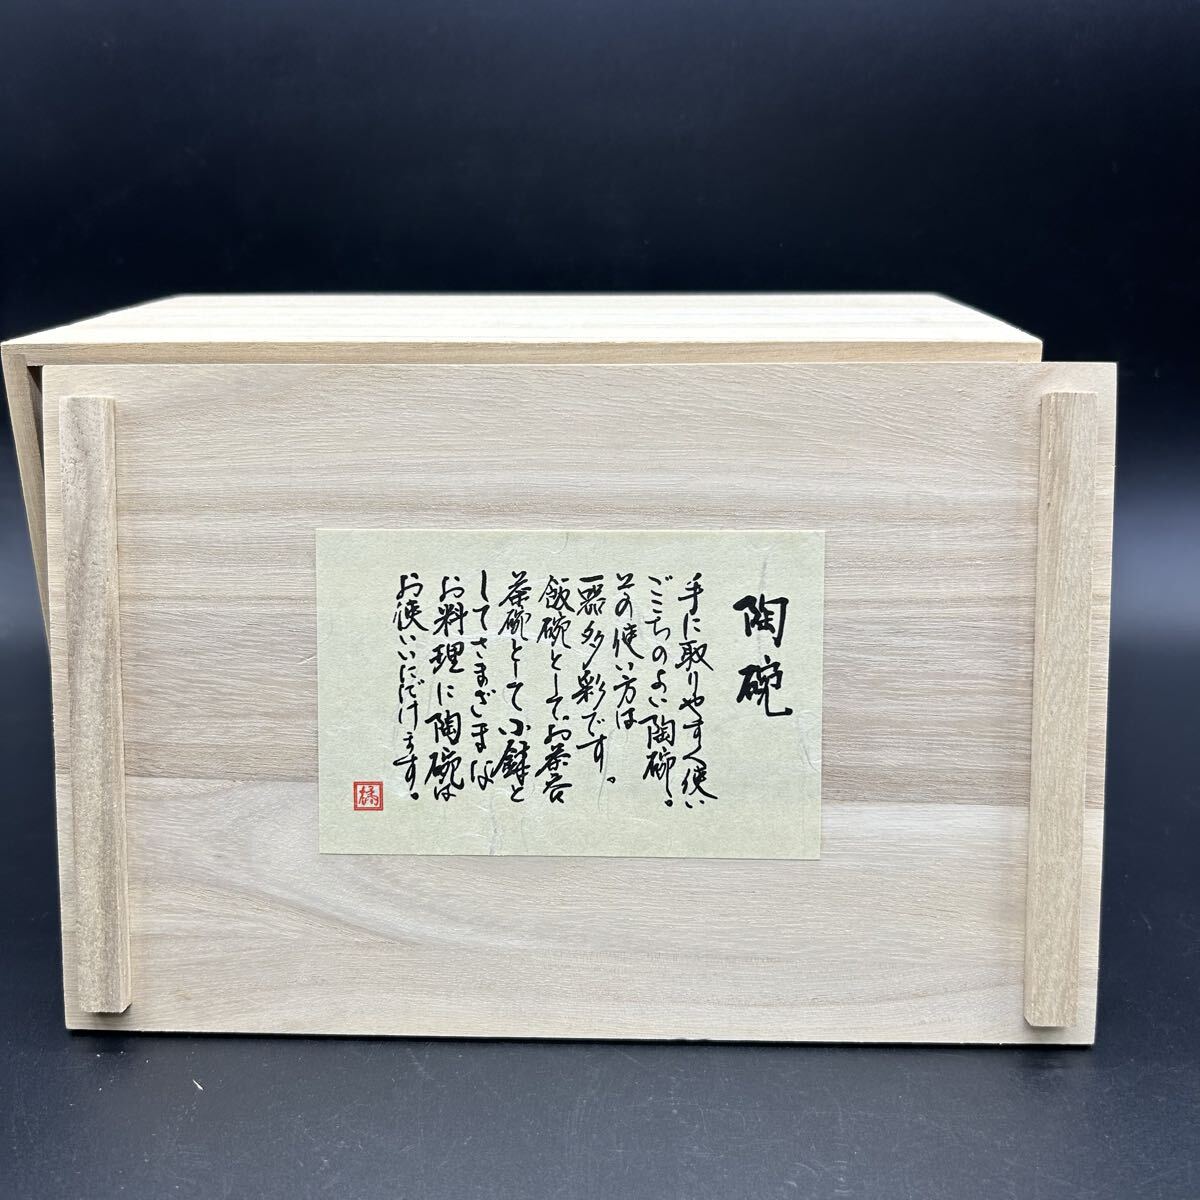 陶碗
手に取りやすく使い
ごこちのよい陶碗。
その使い方は
一器多彩です。
飯碗として、お茶呑
茶碗として、小鉢と
してさまざまな
お料理に陶碗は
お使いいただけます。
橘